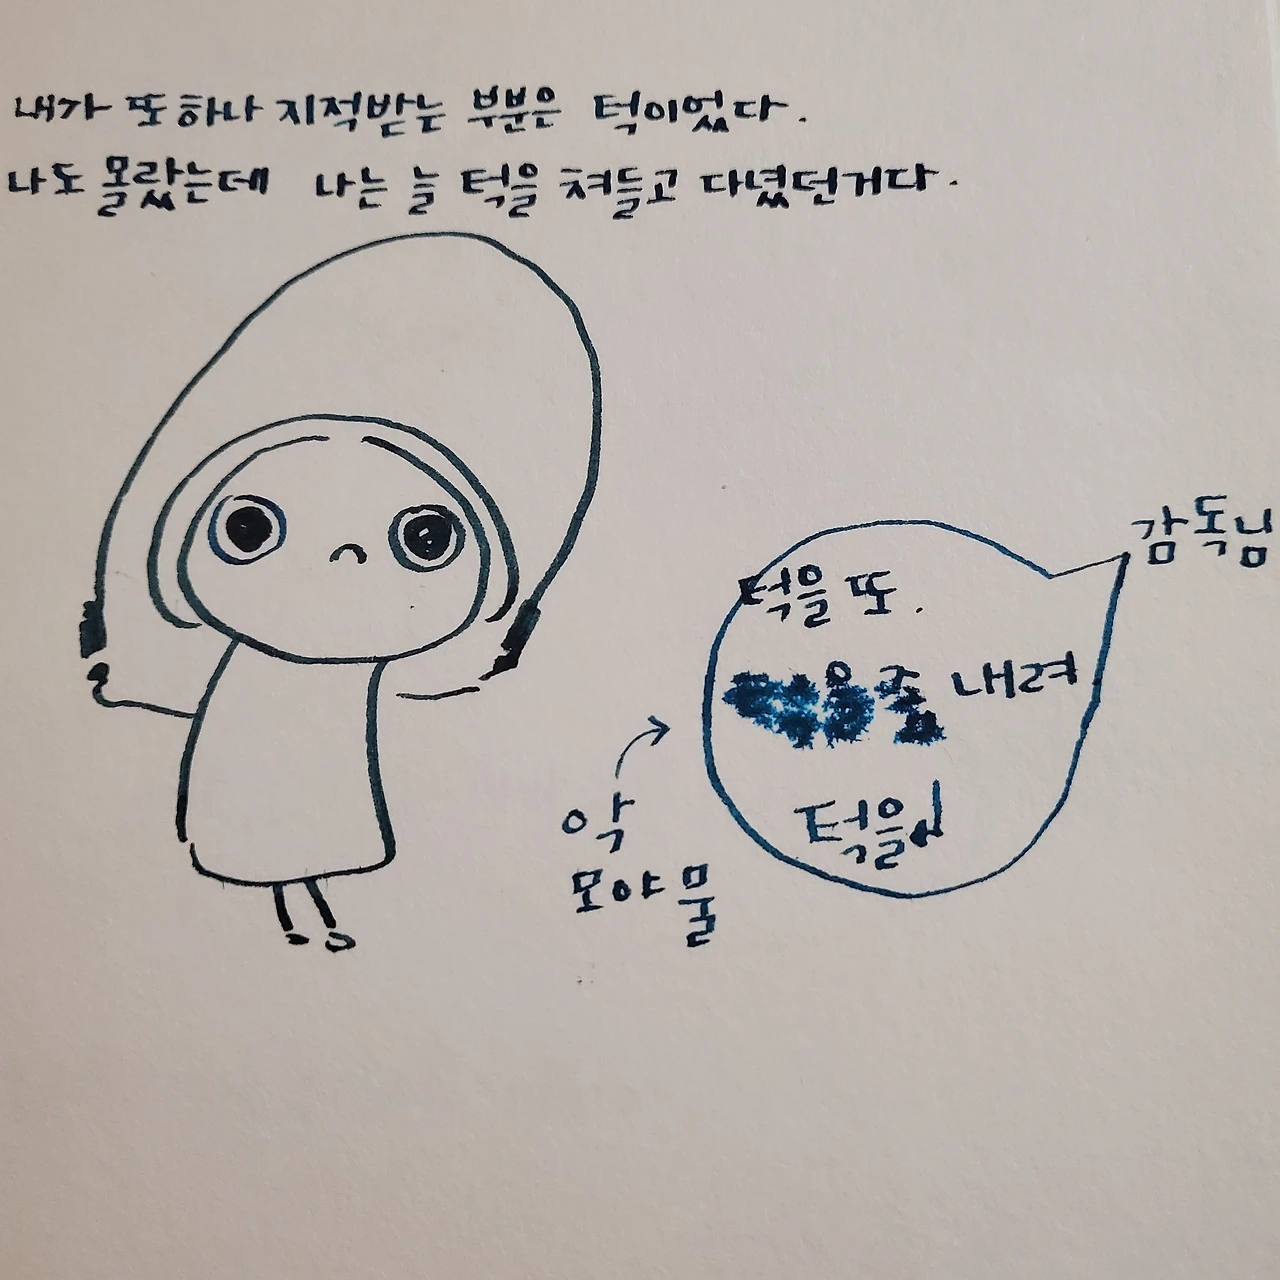 내가 또하나 지적받는 부분은 턱이었다.
나도 몰랐는데 나는 늘 턱을 쳐들고 다녔던거다.
감독님
턱을 또.
좀 내려
턱을!
악
모야 물